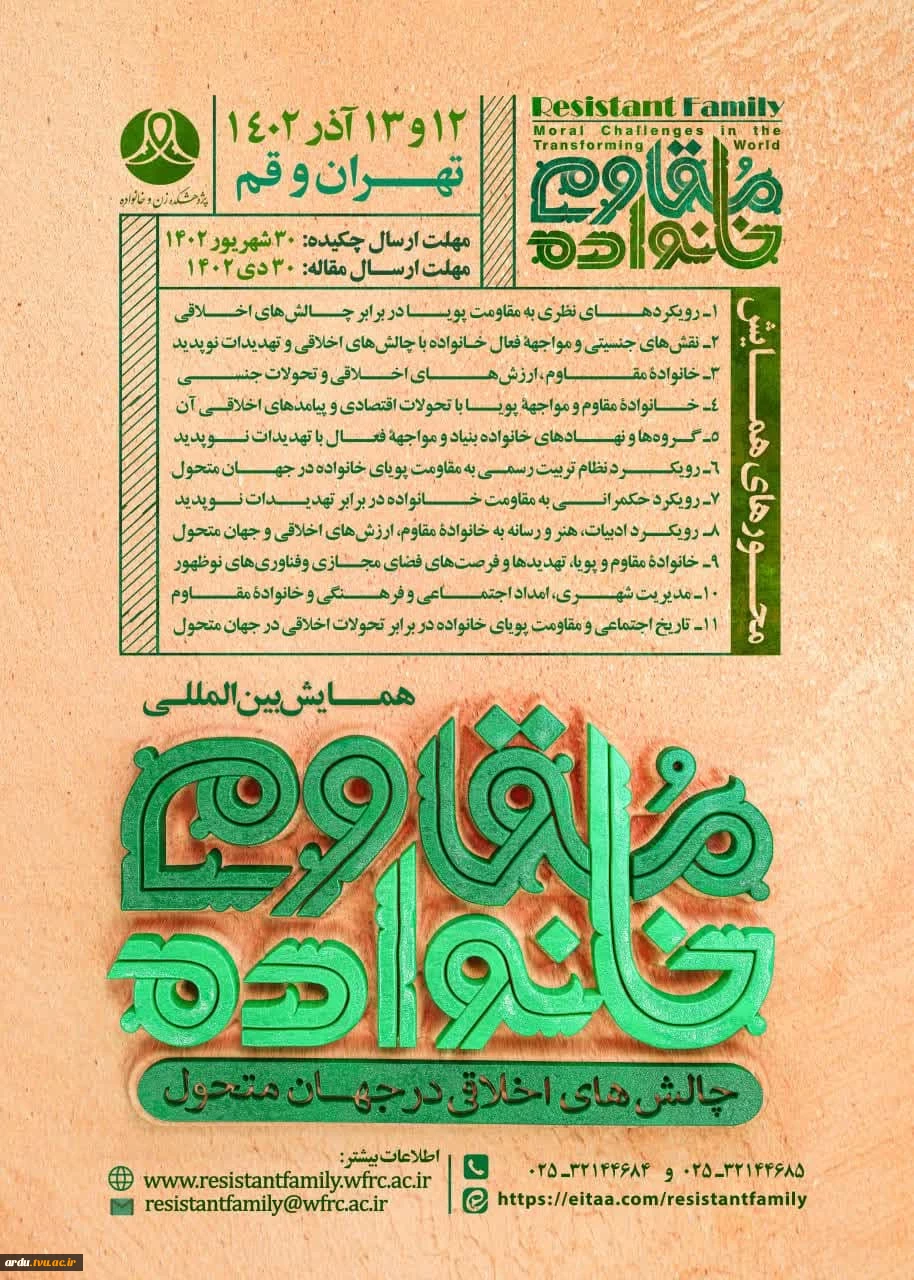 Resistant Family
Moral Challenges in the
Transforming World
خانواده مقاوم
۱۲ و ۱۳ آذر ۱۴۰۲
تهران و قم
پژوهشکده زن و خانواده
مهلت ارسال چکیده: ۳۰ شهریور ۱۴۰۲
مهلت ارسال مقاله: ۳۰ دی ۱۴۰۲
محورهای همایش
۱ـ رویکردهای نظری به مقاومت پویا در برابر چالش‌های اخلاقی
۲ـ نقش‌های جنسیتی و مواجههٔ فعال خانواده با چالش‌های اخلاقی و تهدیدات نوپدید
۳ـ خانوادهٔ مقاوم، ارزش‌های اخلاقی و تحولات جنسی
۴ـ خانوادهٔ مقاوم و مواجههٔ پویا با تحولات اقتصادی و پیامدهای اخلاقی آن
۵ـ گروه‌ها و نهادهای خانواده بنیاد و مواجههٔ فعال با تهدیدات نوپدید
۶ـ رویکرد نظام تربیت رسمی به مقاومت پویای خانواده در جهان متحول
۷ـ رویکرد حکمرانی به مقاومت خانواده در برابر تهدیدات نوپدید
۸ـ رویکرد ادبیات، هنر و رسانه به خانوادهٔ مقاوم، ارزش‌های اخلاقی و جهان متحول
۹ـ خانوادهٔ مقاوم و پویا، تهدیدها و فرصت‌های فضای مجازی وفناوری‌های نوظهور
۱۰ـ مدیریت شهری، امداد اجتماعی و فرهنگی و خانوادهٔ مقاوم
۱۱ـ تاریخ اجتماعی و مقاومت پویای خانواده در برابر تحولات اخلاقی در جهان متحول
همایش بین‌المللی
خانواده مُقاوم
چالش های اخلاقی در جهان متحول
۰۲۵ـ۳۲۱۴۴۶۸۵ و ۰۲۵ـ۳۲۱۴۴۶۸۴
https://eitaa.com/resistantfamily
اطلاعات بیشتر:
www.resistantfamily.wfrc.ac.ir
resistantfamily@wfrc.ac.ir
ardu.tvu.ac.ir